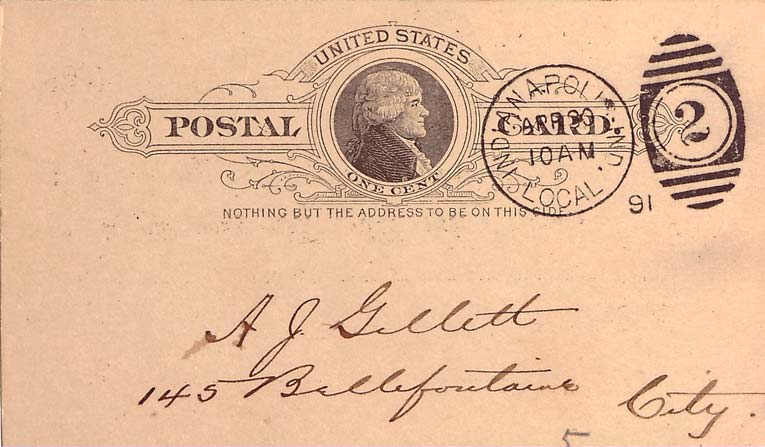 UNITED STATES
POSTAL CARD.
ONE CENT
NOTHING BUT THE ADDRESS TO BE ON THIS SIDE.
INDIANAPOLIS, IND.
APR 30
10 AM
91
LOCAL
2
A J Gillett
145 Bellefontaine City.
5